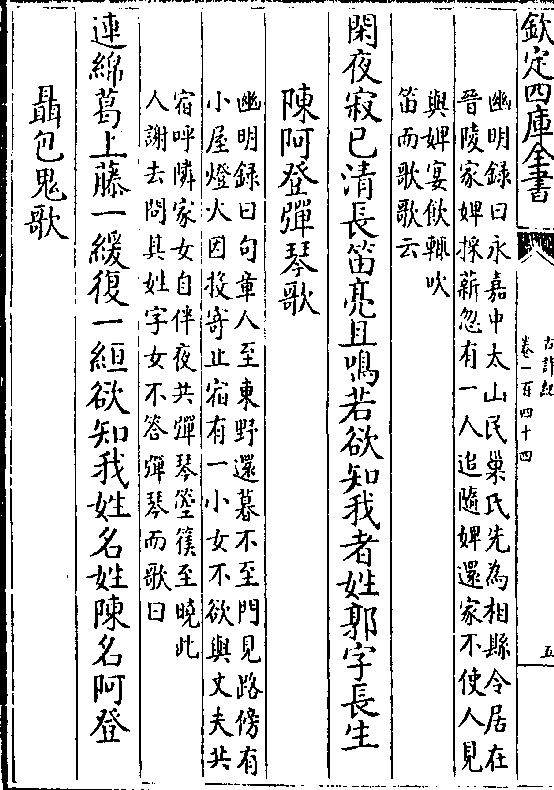 欽定四庫全書
古詩紀
卷一百四十四
五
幽明録曰永嘉中太山民巢氏先為相縣令居在
晉陵家婢採薪忽有一人追隨婢還家不使人見
與婢宴飲輒吹
笛而歌歌云
閑夜寂已清長笛亮且鳴若欲知我者姓郭字長生
陳阿登彈琴歌
幽明録曰句章人至東野還暮不至門見路傍有
小屋燈火因投寄止宿有一小女不欲與丈夫共
宿呼隣家女自伴夜共彈琴箜篌至曉此
人謝去問其姓字女不答彈琴而歌曰
連綿葛上藤一緩復一絙欲知我姓名姓陳名阿登
聶包鬼歌